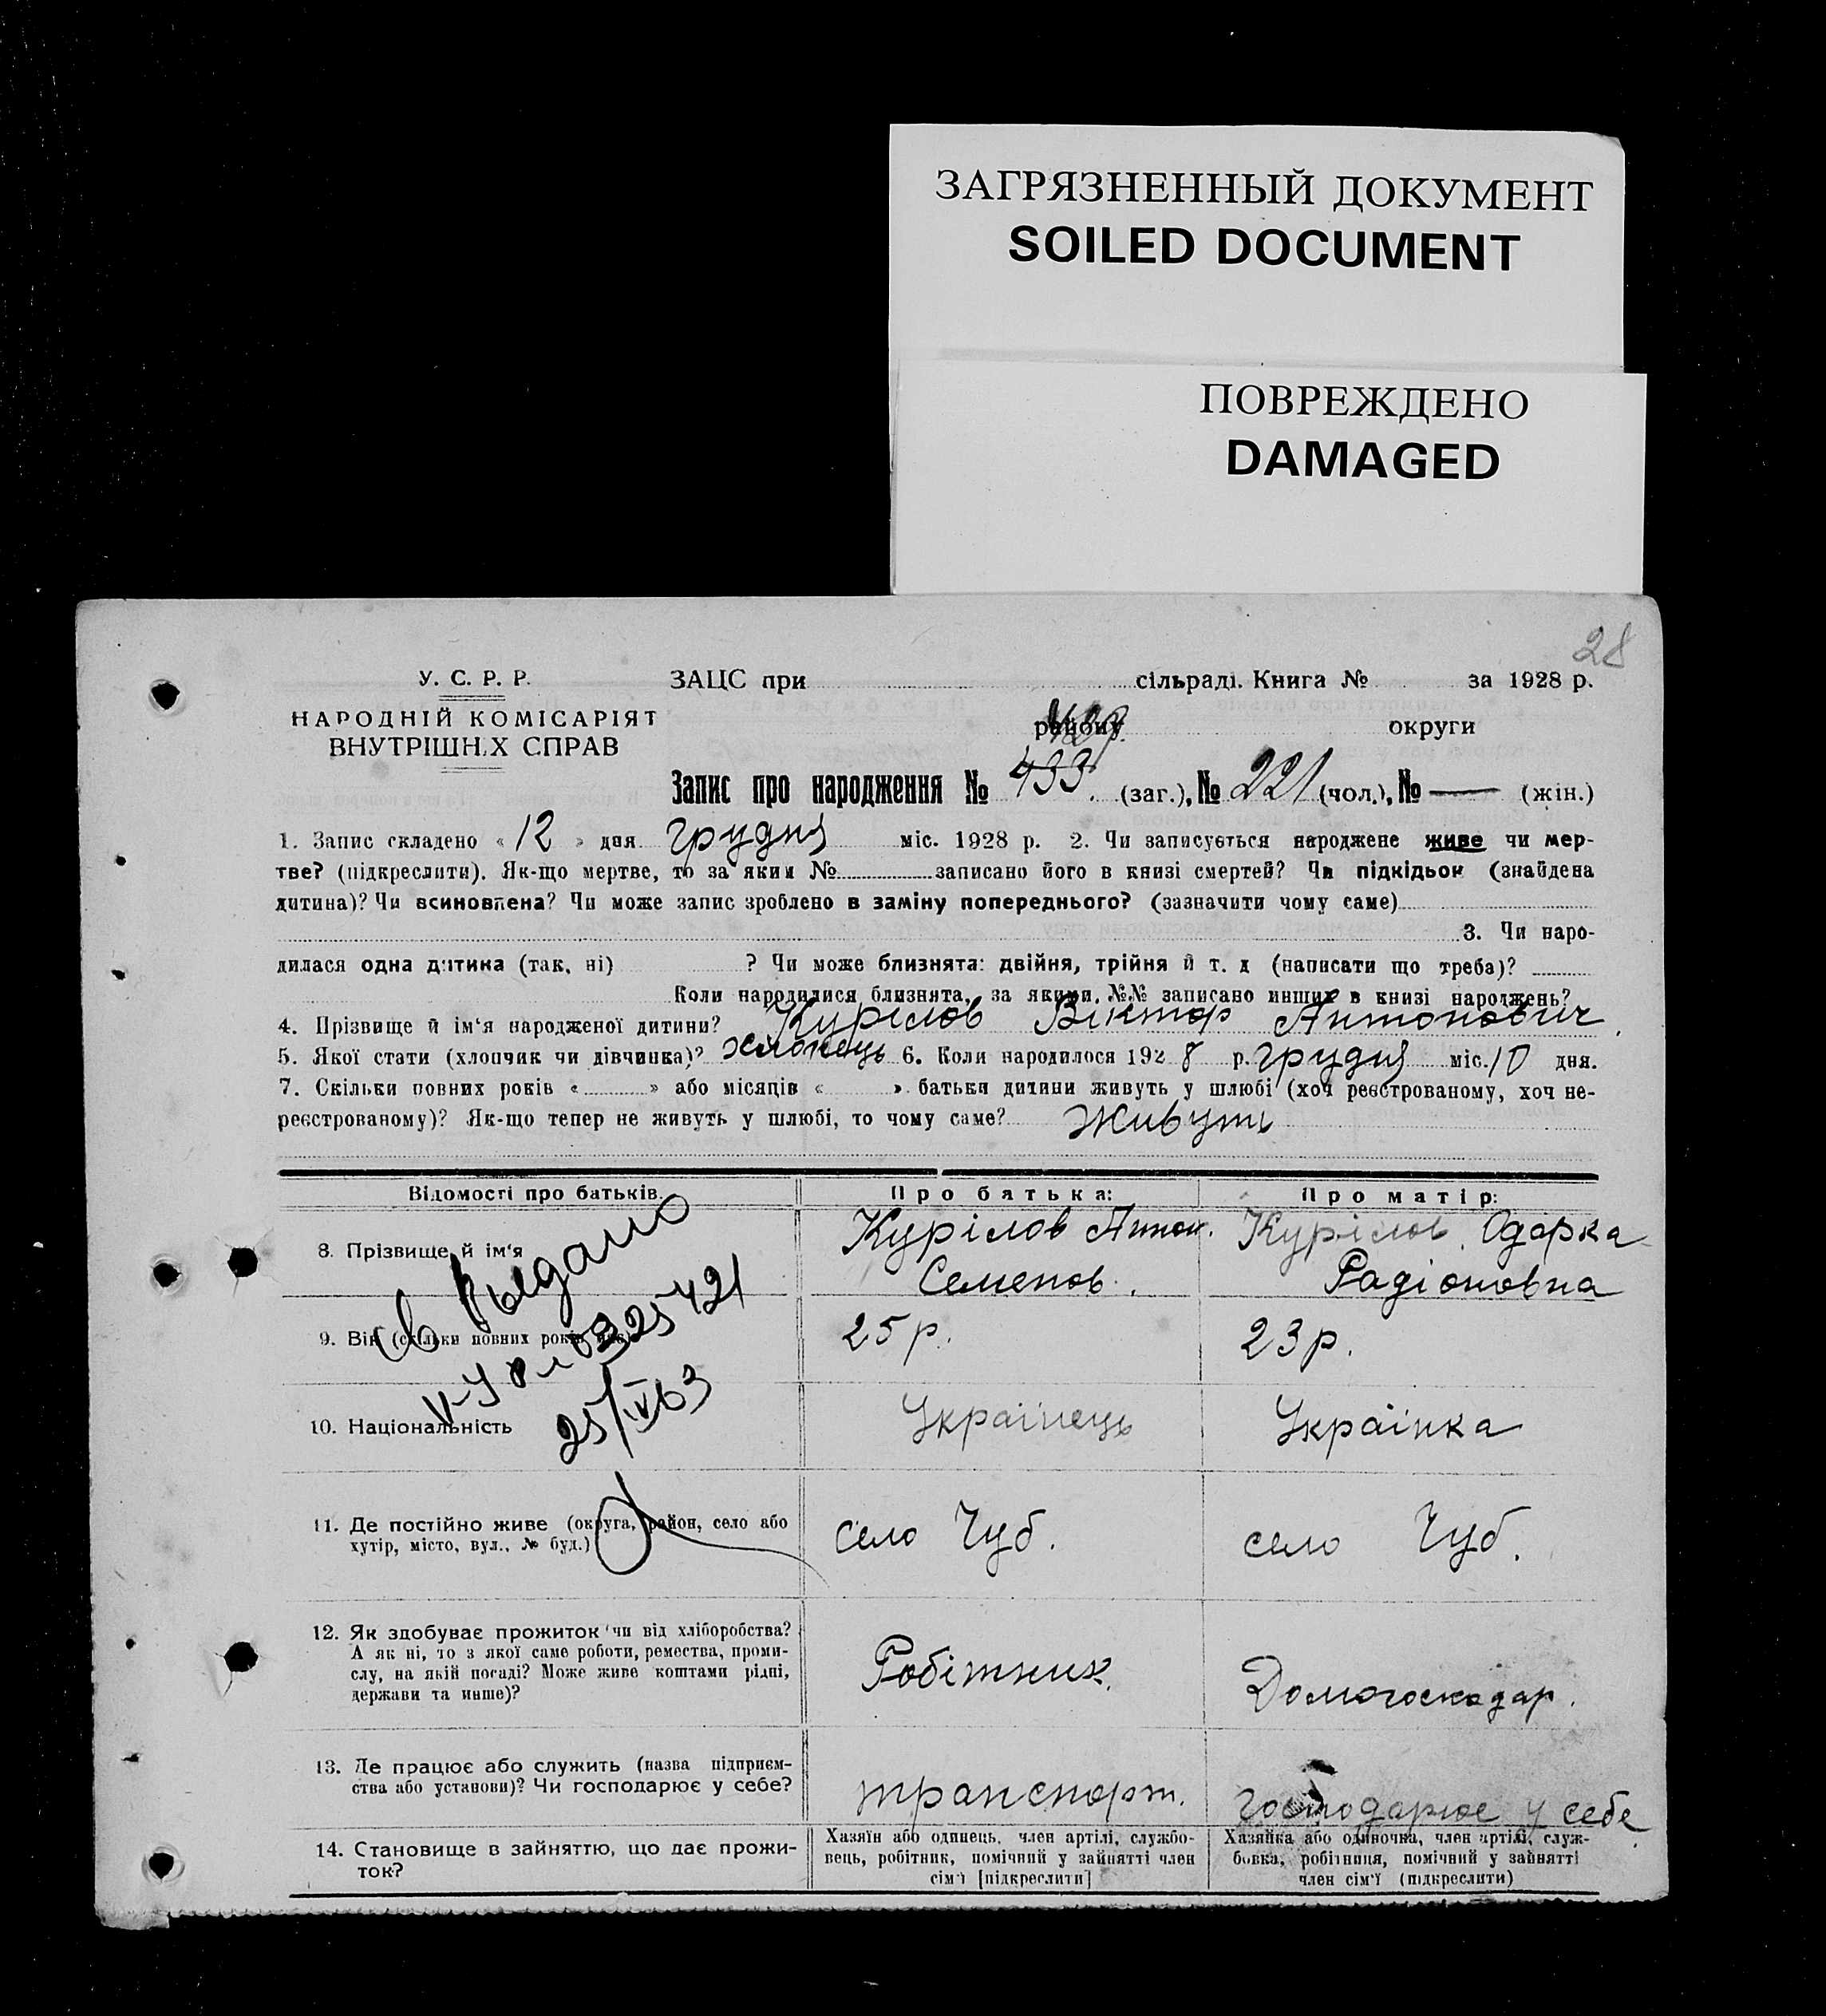 ЗАГРЯЗНЕННЫЙ ДОКУМЕНТ
SOILED DOCUMENT
ПОВРЕЖДЕНО
DAMAGED
28
У. С. Р. Р.
НАРОДНІЙ КОМІСАРІЯТ
ВНУТРІШНІХ СПРАВ
ЗАЦС при сільраді. Книга № за 1928 р.
району округи
429.
Запис про народження № 433. (заг.), № 221 (чол.), № — (жін.)
1. Запис складено « 12 » дня грудня міс. 1928 р. 2. Чи записується народжене живе чи мер-
тве? (підкреслити). Як-що мертве, то за яким № записано його в книзі смертей? Чи підкідьок (знайдена
дитина)? Чи всиновлена? Чи може запис зроблено в заміну попереднього? (зазначити чому саме)
3. Чи наро-
дилася одна дитина (так, ні) ? Чи може близнята: двійня, трійня й т. д (написати що треба)?
Коли народилися близнята, за якими №№ записано инших в книзі народжень?
4. Прізвище й ім'я народженої дитини? Курілов Віктор Антонович.
5. Якої стати (хлопчик чи дівчинка)? Хлопець 6. Коли народилося 1928 р. грудня міс. 10 дня.
7. Скільки повних років « » або місяців « » батьки дитини живуть у шлюбі (хоч реєстрованому, хоч не-
реєстрованому)? Як-що тепер не живуть у шлюбі, то чому саме? Живуть
Відомості про батьків. Про батька: Про матір:
8. Прізвище й ім'я Курілов Антон. Семенов. Курілов. Одарка Радіоновна
9. Вік (скільки повних років має) 25 р. 23 р.
10. Національність Українець Українка
Св Выдано
325421
25/IV 63
11. Де постійно живе (округа, район, село або
хутір, місто, вул., № буд.) село Чуб. село Чуб.
12. Як здобуває прожиток чи від хліборобства?
А як ні, то з якої саме роботи, ремества, проми-
слу, на якій посаді? Може живе коштами рідні,
держави та инше)? Робітник. Домогосподар.
13. Де працює або служить (назва підприєм-
ства або установи)? Чи господарює у себе? транспорт. господарює у себе
14. Становище в зайняттю, що дає прожи-
ток?
Хазяїн або одинець, член артілі, службо-
вець, робітник, помічний у зайнятті член
сім'ї [підкреслити]
Хазяйка або одиночка, член артілі, служ-
бовка, робітниця, помічний у зайнятті
член сім'ї (підкреслити)